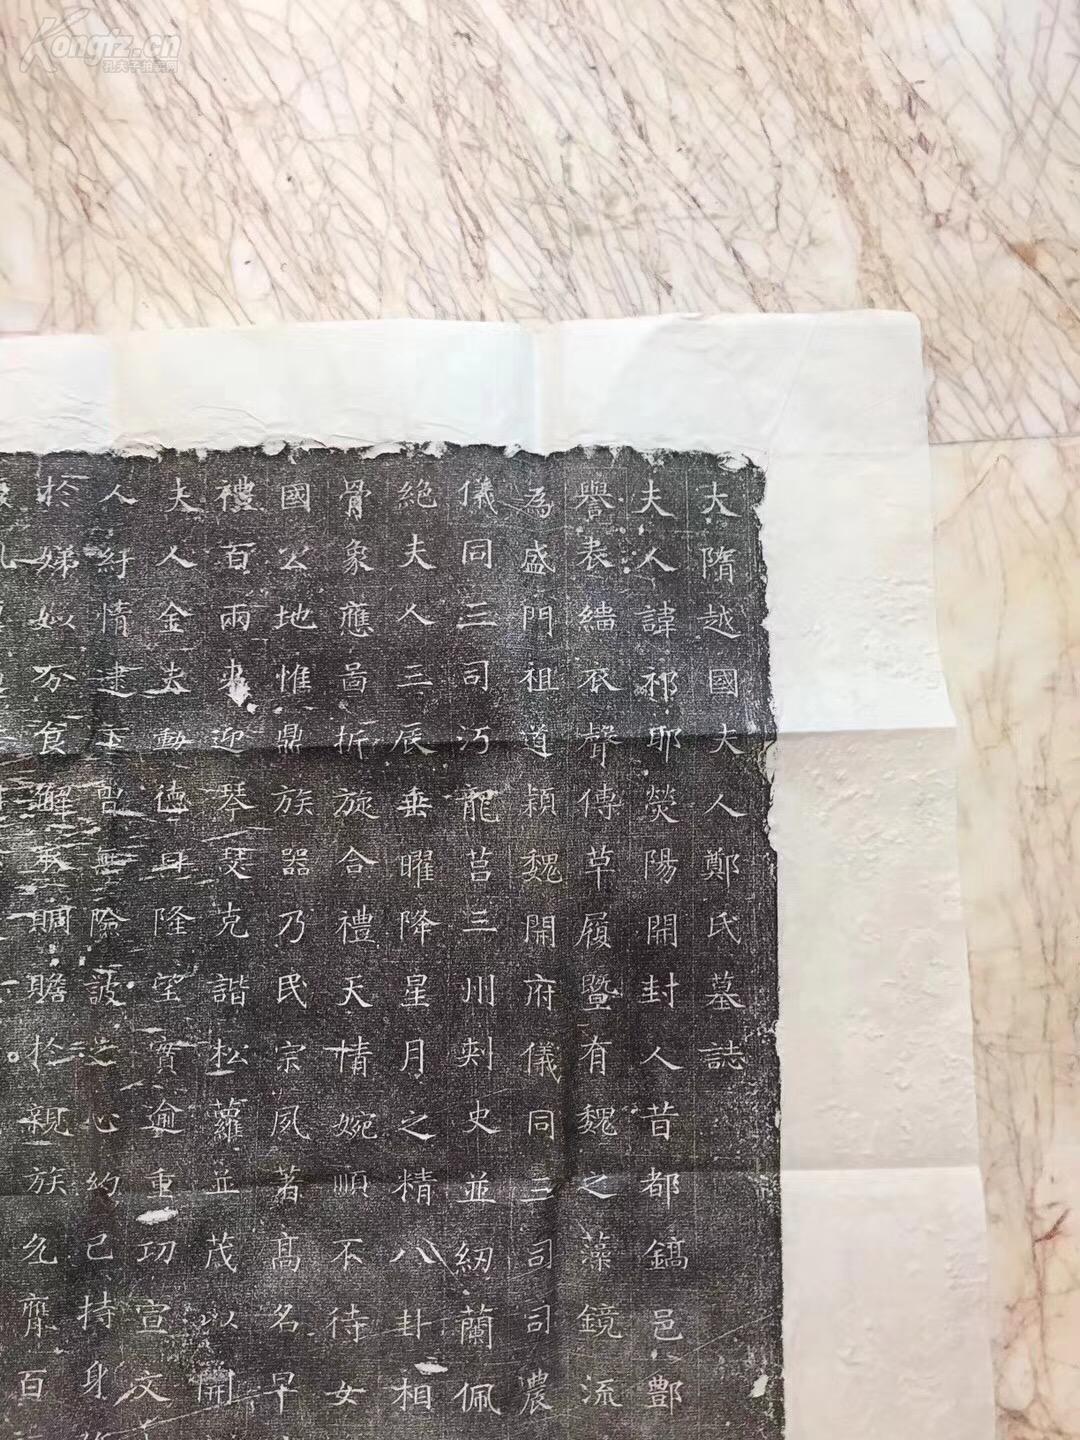 大隋越國夫人鄭氏墓誌
夫人諱祁耶熒陽開封人昔都鎬邑酆
譽表緇衣聲傳草履暨有魏之藻鏡流
為盛門祖道穎魏開府儀同三司司農
儀同三司沔龍莒三州刺史並紉蘭佩
絶夫人三辰垂曜降星月之精八卦相
骨象應啚折旋合禮天情婉順不待女
國公地惟鼎族器乃民宗夙著髙名早
禮百兩来迎琴瑟克諧松蘿並茂以開
夫人金夫勳德隆望實逾重功宣文
人紆情建險詖之心約己持身
於娣姒分食解衣賙贍於親族允膺百
Kongfz.cn
孔夫子拍卖网